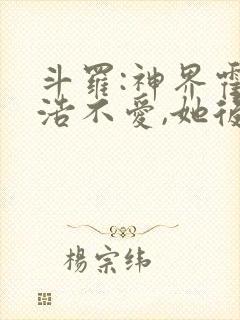 斗羅:神界霍
浩不愛,她後
楊宗緯